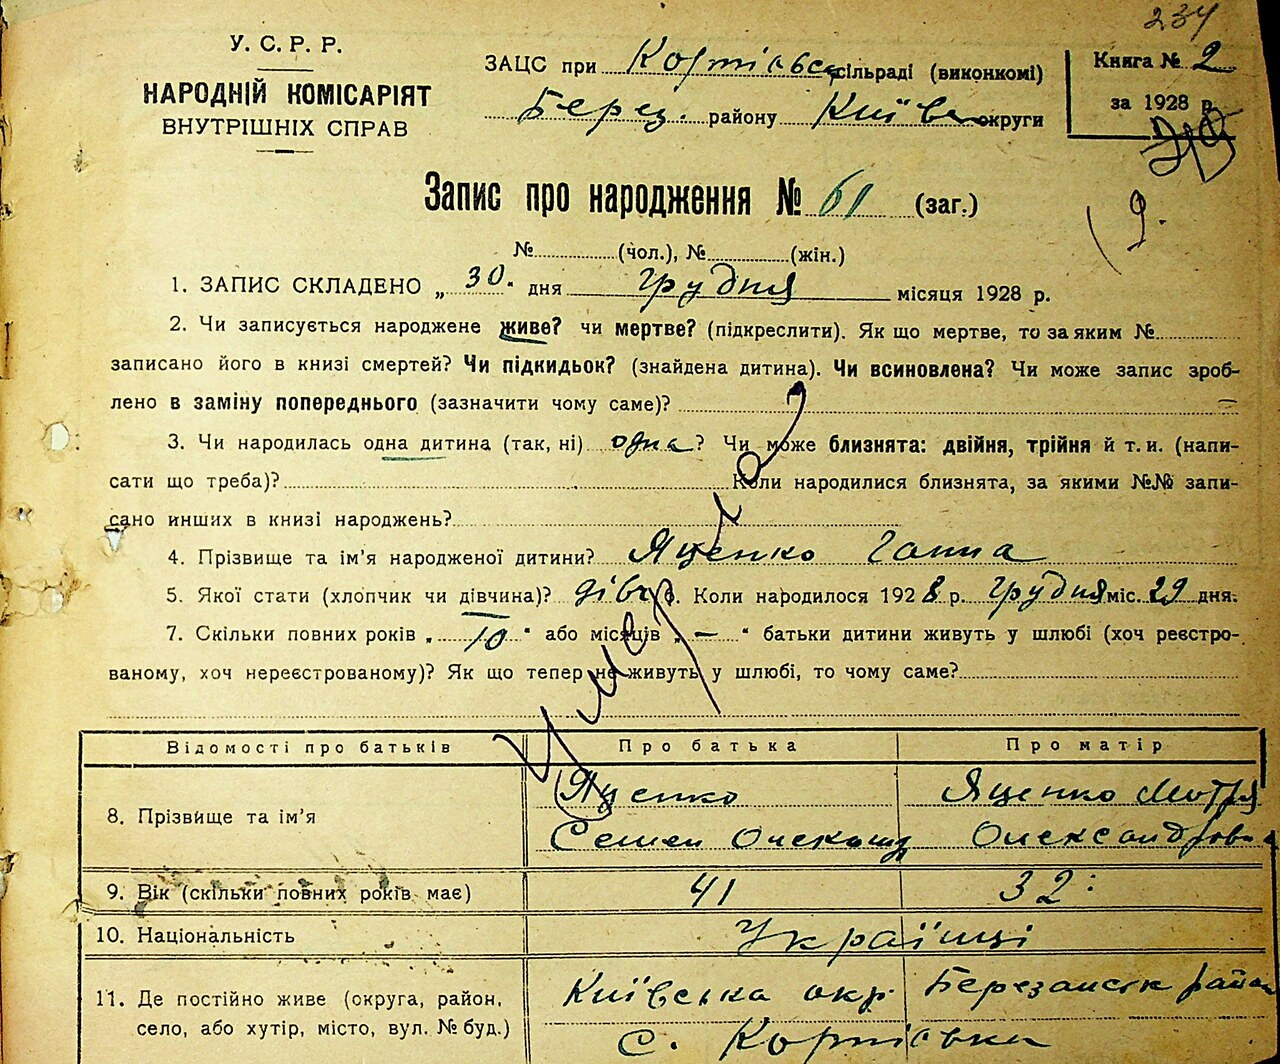 234
У. С. Р. Р.
НАРОДНІЙ КОМІСАРІЯТ
ВНУТРІШНІХ СПРАВ
ЗАЦС при сільраді (виконкомі)
Берез. району Київ округи
Книга № 2
за 1928 р.
Запис про народження № 61 (заг.)
9.
№ (чол.), № (жін.)
1. ЗАПИС СКЛАДЕНО „ 30 " дня грудня місяця 1928 р.
2. Чи записується народжене живе? чи мертве? (підкреслити). Як що мертве, то за яким №
записано його в книзі смертей? Чи підкидьок? (знайдена дитина). Чи всиновлена? Чи може запис зроб-
лено в заміну попереднього (зазначити чому саме)? —
3. Чи народилась одна дитина (так, ні) одна? Чи може близнята: двійня, трійня й т. и. (напи-
сати що треба)? Коли народилися близнята, за якими №№ запи-
сано инших в книзі народжень?
4. Прізвище та ім'я народженої дитини? Яценко Ганна
5. Якої стати (хлопчик чи дівчина)? дівч. Коли народилося 1928 р. грудня міс. 29 дня.
7. Скільки повних років „ 10 " або місяців „ — " батьки дитини живуть у шлюбі (хоч реєстро-
ваному, хоч нереєстрованому)? Як що тепер не живуть у шлюбі, то чому саме?
Умерла
Відомості про батьків Про батька Про матір
8. Прізвище та ім'я
Яценко Яценко Мотря
Семен Олександ Олександровна
9. Вік (скільки повних років має) 41 32
10. Національність Українці
11. Де постійно живе (округа, район,
село, або хутір, місто, вул. № буд.)
Київська окр. Березанськ район
с.